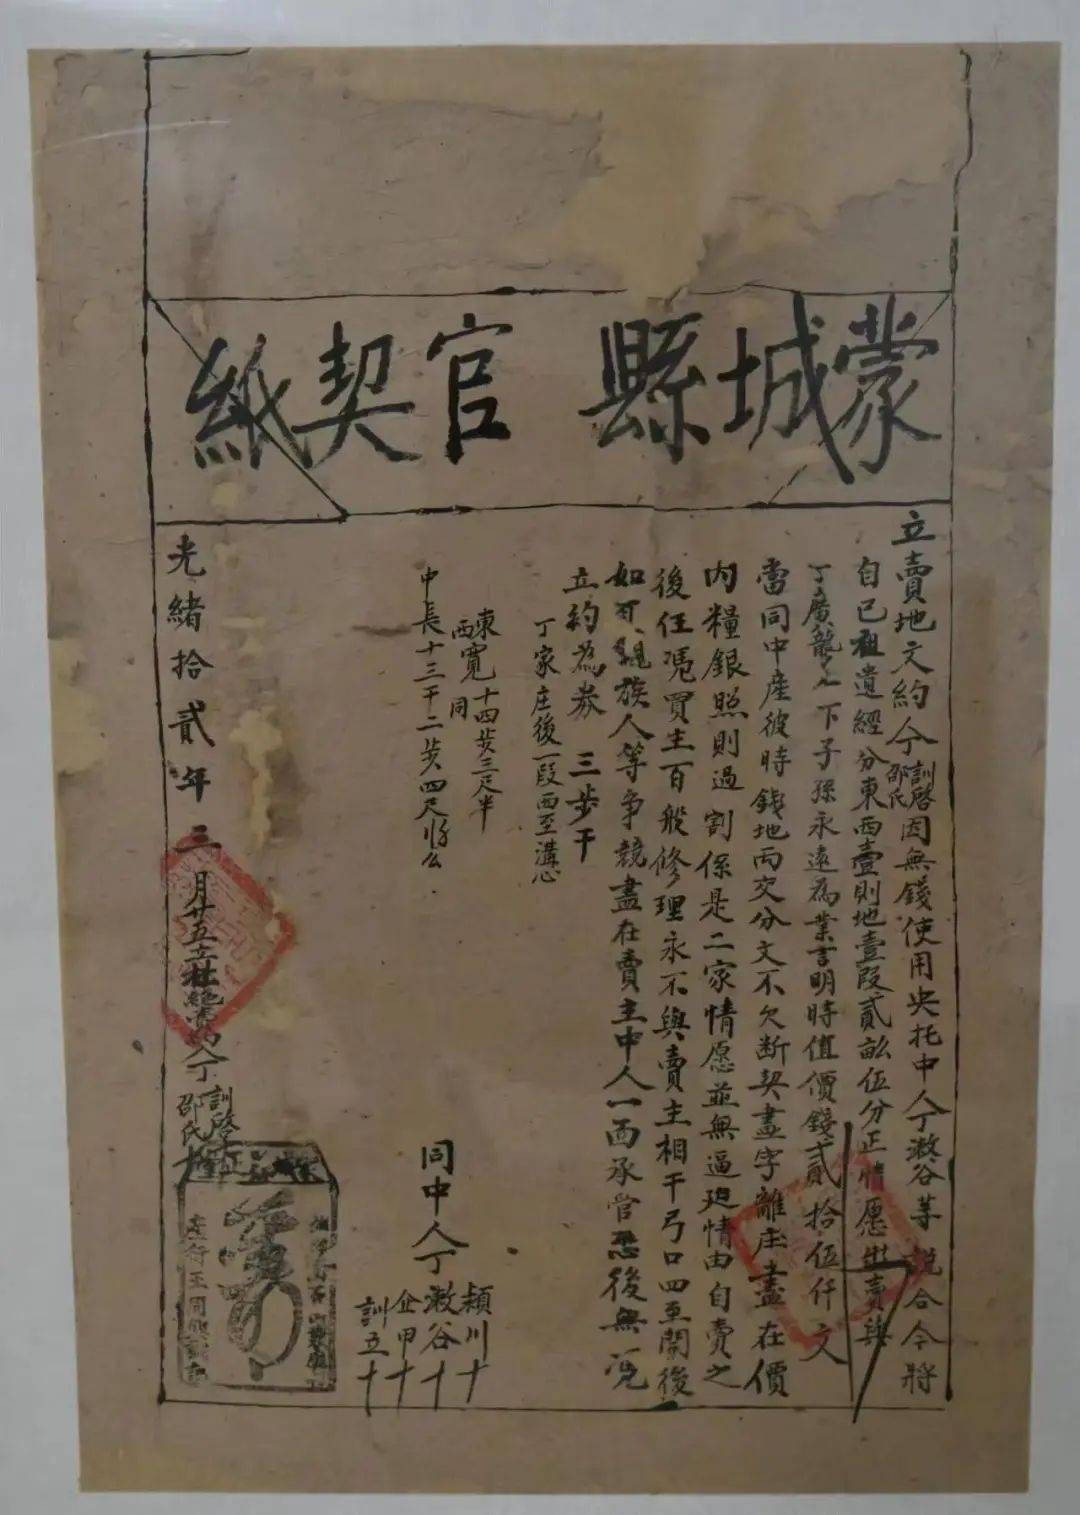 蒙城縣官契紙
立賣地文約今訓啓邵氏因無錢使用央托中人丁漵谷等說合今將
自己祖遺經分東西壹則地壹段貳畝伍分正情愿出賣與
丁廣龍名下子孫永遠為業言明時值價錢貳拾伍仟文
當同中産彼時錢地两交分文不欠断契盡字離庄盡在價
内糧銀照則過割係是二家情愿並無逼廹情由自賣之
後任凴買主百般修理永不與賣主相干弓口四至開後
如有親族人等争競盡在賣主中人一面承管恐後無凭
立約為券 三步干
丁家庄後一段西至溝心
東西寬十四步三尺半同
中長十三干二步四尺
同中人丁
頴川十
漵谷十
企甲十
訓五十
光緒拾貳年三月廿五立杜絶賣約人丁訓啓邵氏十